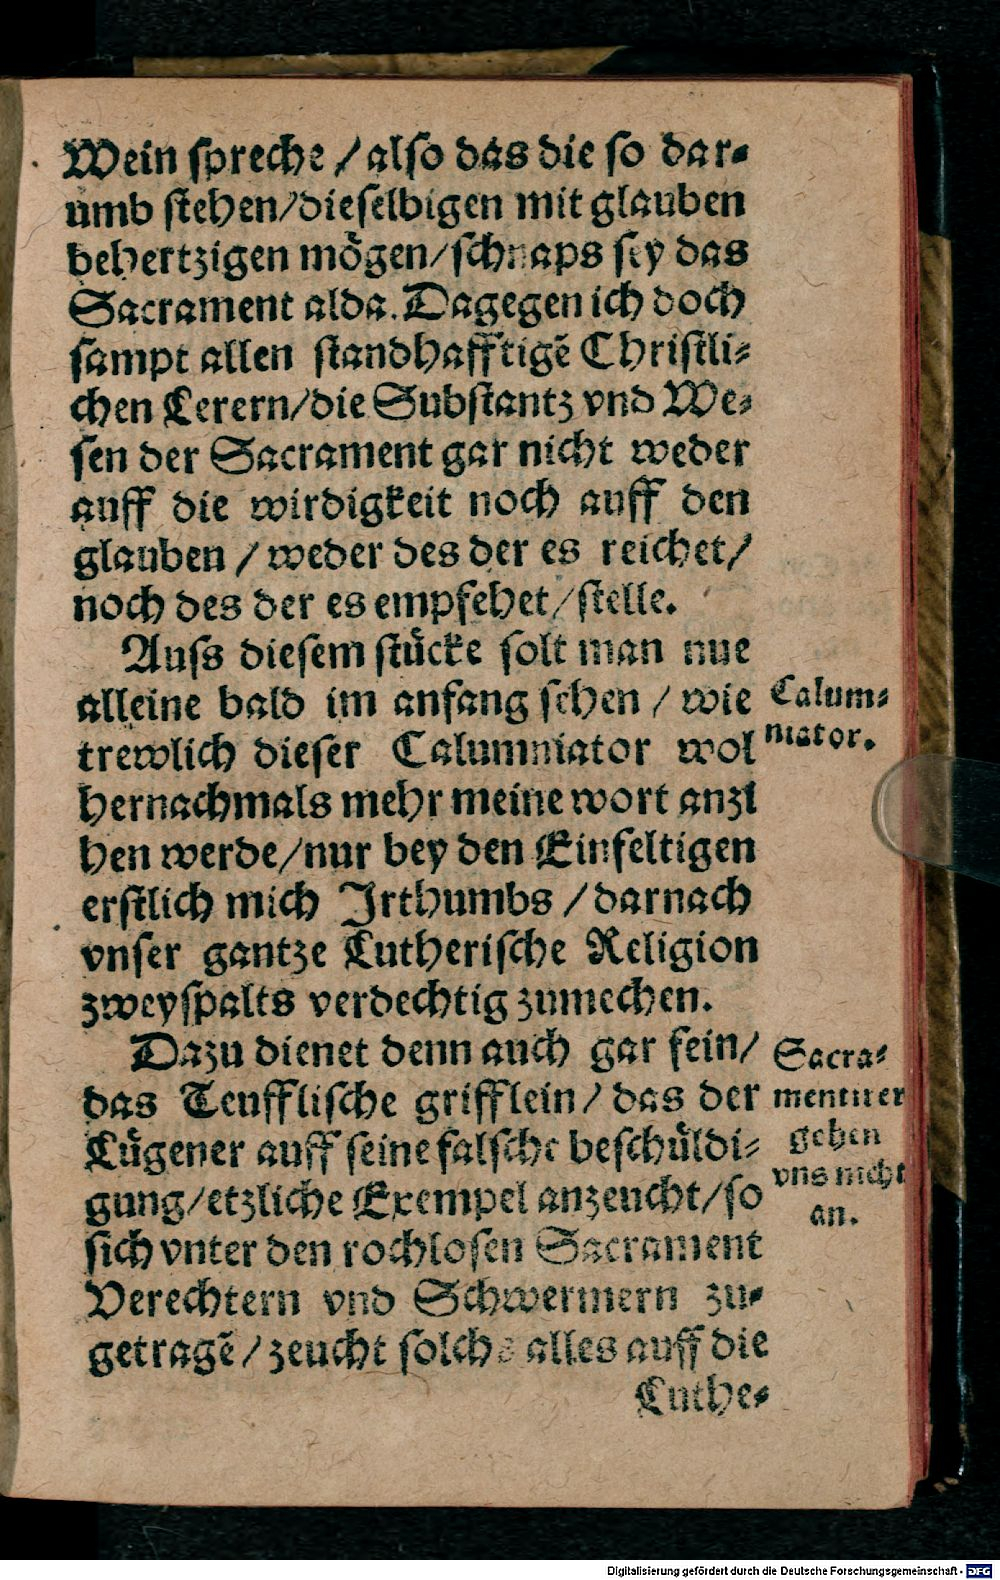 Wein spreche / also das die so dar-
umb stehen/dieselbigen mit glauben
behertzigen mögen/schnaps sey das
Sacrament alda. Dagegen ich doch
sampt allen standhafftigē Christli-
chen Lerern/die Substantz vnd We-
sen der Sacrament gar nicht weder
auff die wirdigkeit noch auff den
glauben / weder des der es reichet/
noch des der es empfehet/stelle.
Auss diesem stücke solt man nue
alleine bald im anfang sehen / wie
Calum-
trewlich dieser Calumniator wol
niator.
hernachmals mehr meine wort anzi
hen werde/nur bey den Einfeltigen
erstlich mich Irthumbs / darnach
vnser gantze Lutherische Religion
zweyspalts verdechtig zumechen.
Dazu dienet denn auch gar fein/
Sacra-
das Teufflische grifflein/ das der
mentirer
Lügener auff seine falsche beschüldi-
gehen
gung/etzliche Exempel anzeucht/so
vns nicht
an.
sich vnter den rochlosen Sacrament
Verechtern vnd Schwermern zu-
getragē/zeucht solchs alles auff die
Luthe-
Digitalisierung gefördert durch die Deutsche Forschungsgemeinschaft - DFG